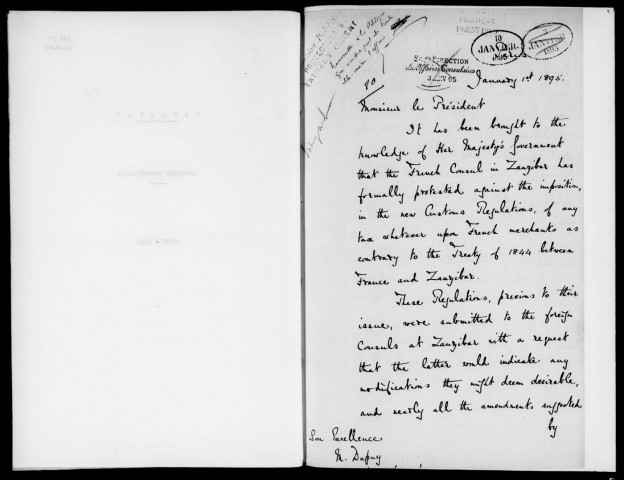 POLITIQUE
10
JANVIER
1895
JANVIER
1895
DIRECTION
des Affaires Consulaires
January 1st 1895.
Monsieur le Président
It has been brought to the
knowledge of Her Majesty's Government
that the French Consul in Zanzibar has
formally protested against the imposition,
in the new Customs Regulations, of any
tax whatever upon French merchants as
contrary to the Treaty of 1844 between
France and Zanzibar.
These Regulations, previous to their
issue, were submitted to the foreign
Consuls at Zanzibar with a request
that the latter would indicate any
modifications they might deem desirable,
and nearly all the amendments suggested
by
Son Excellence
M. Dupuy